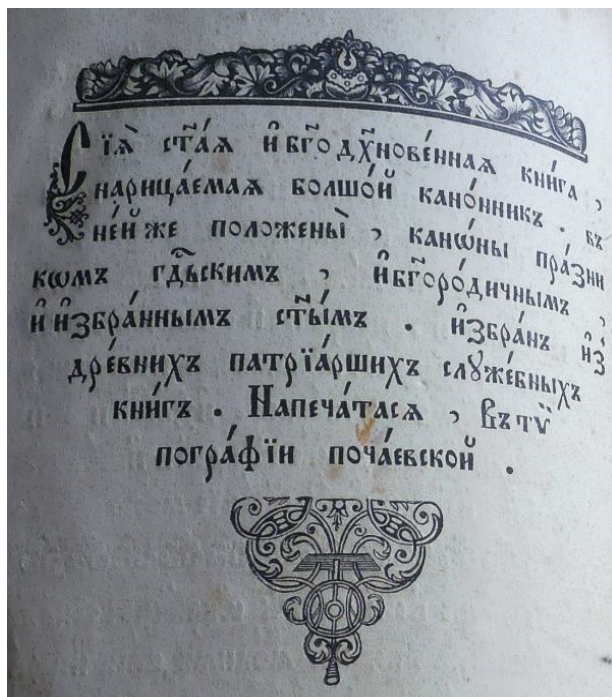 Сїѧ̀ ст҃а́ѧ и҆ бг҃одх҃нове́ннаѧ кни́га ,
нарица́емаѧ болшо́й кано́нникъ . въ
не́й же положены̀ , кано́ны пра́зни
кѡмъ гдⷭ҇ьскимъ , и҆ бг҃оро́дичнымъ ,
и҆ и҆збра́ннымъ ст҃ы́мъ . и҆збра́нъ и҆з̾
дре́внихъ патрїа́ршихъ слꙋже́бныхъ
кни́гъ . Напеча́тасѧ , въ тѷ
погра́фїи поча́евской .